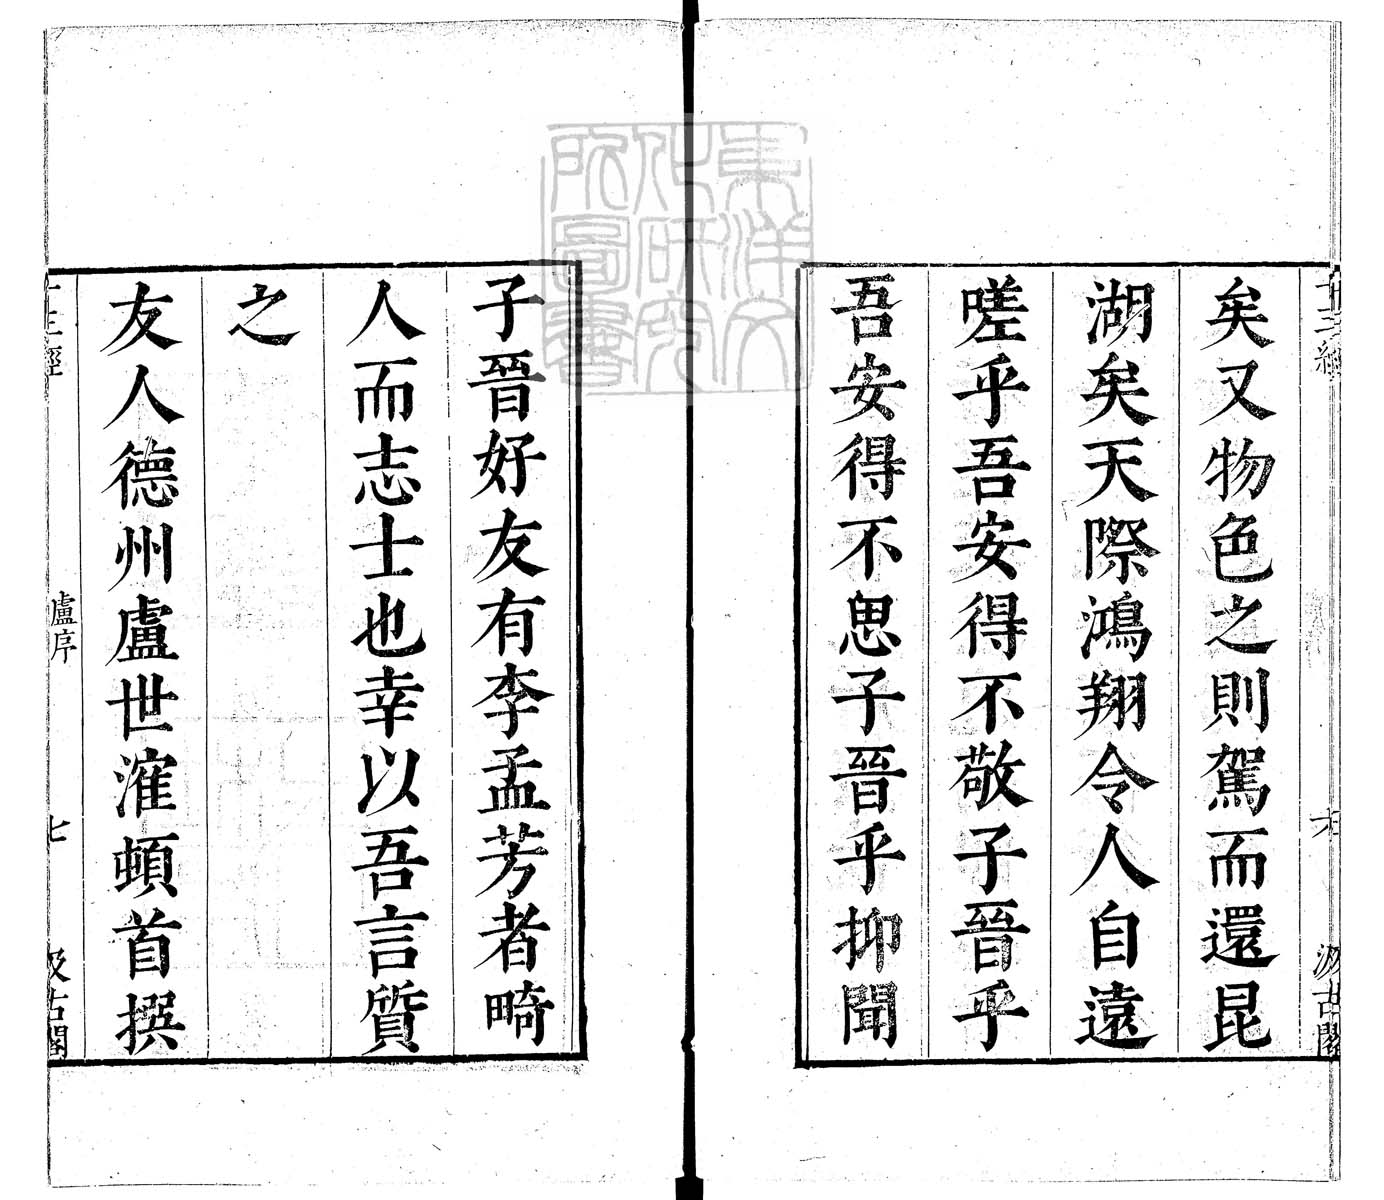 十三經
六
汲古閣
矣又物色之則駕而還昆
湖矣天際鴻翔令人自遠
嗟乎吾安得不敬子晉乎
吾安得不思子晉乎抑聞
子晉好友有李孟芳者畸
人而志士也幸以吾言質
之
友人德州盧世㴶頓首撰
十三經
盧序
七
汲古閣
東洋文化研究所圖書